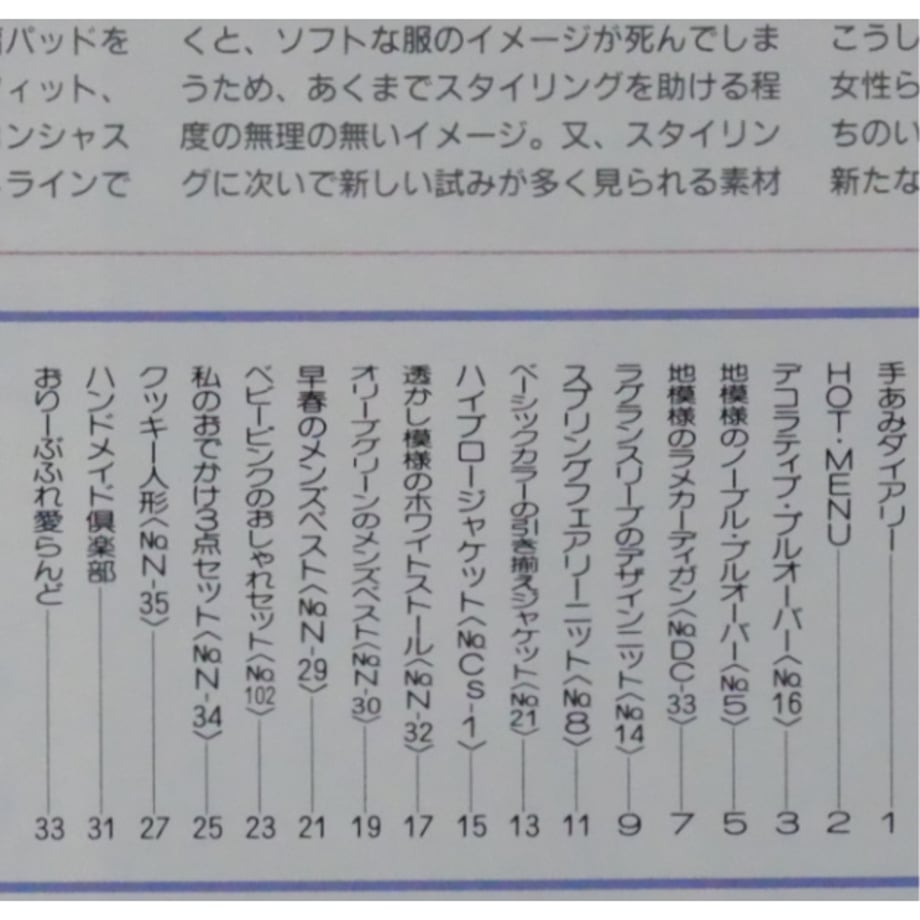 パッドを
ィット、
ンシャス
ラインで
くと、ソフトな服のイメージが死んでしま
うため、あくまでスタイリングを助ける程
度の無理の無いイメージ。又、スタイリン
グに次いで新しい試みが多く見られる素材
こうし
女性ら
ちのい
新たな
手あみダイアリー 1
HOT・MENU 2
デコラティブ・プルオーバー〈№16〉 3
地模様のノーブル・プルオーバー〈№5〉 5
地模様のラメカーディガン〈№DC-33〉 7
ラグランスリーブのデザインニット〈№14〉 9
スプリングフェアリーニット〈№8〉 11
ベーシックカラーの引き揃えジャケット〈№21〉 13
ハイブロージャケット〈№CS-1〉 15
透かし模様のホワイトストール〈№N-32〉 17
オリーブグリーンのメンズベスト〈№N-30〉 19
早春のメンズベスト〈№N-29〉 21
ベビーピンクのおしゃれセット〈№102〉 23
私のおでかけ3点セット〈№N-34〉 25
クッキー人形〈№N-35〉 27
ハンドメイド倶楽部 31
おりーぶふれ愛らんど 33